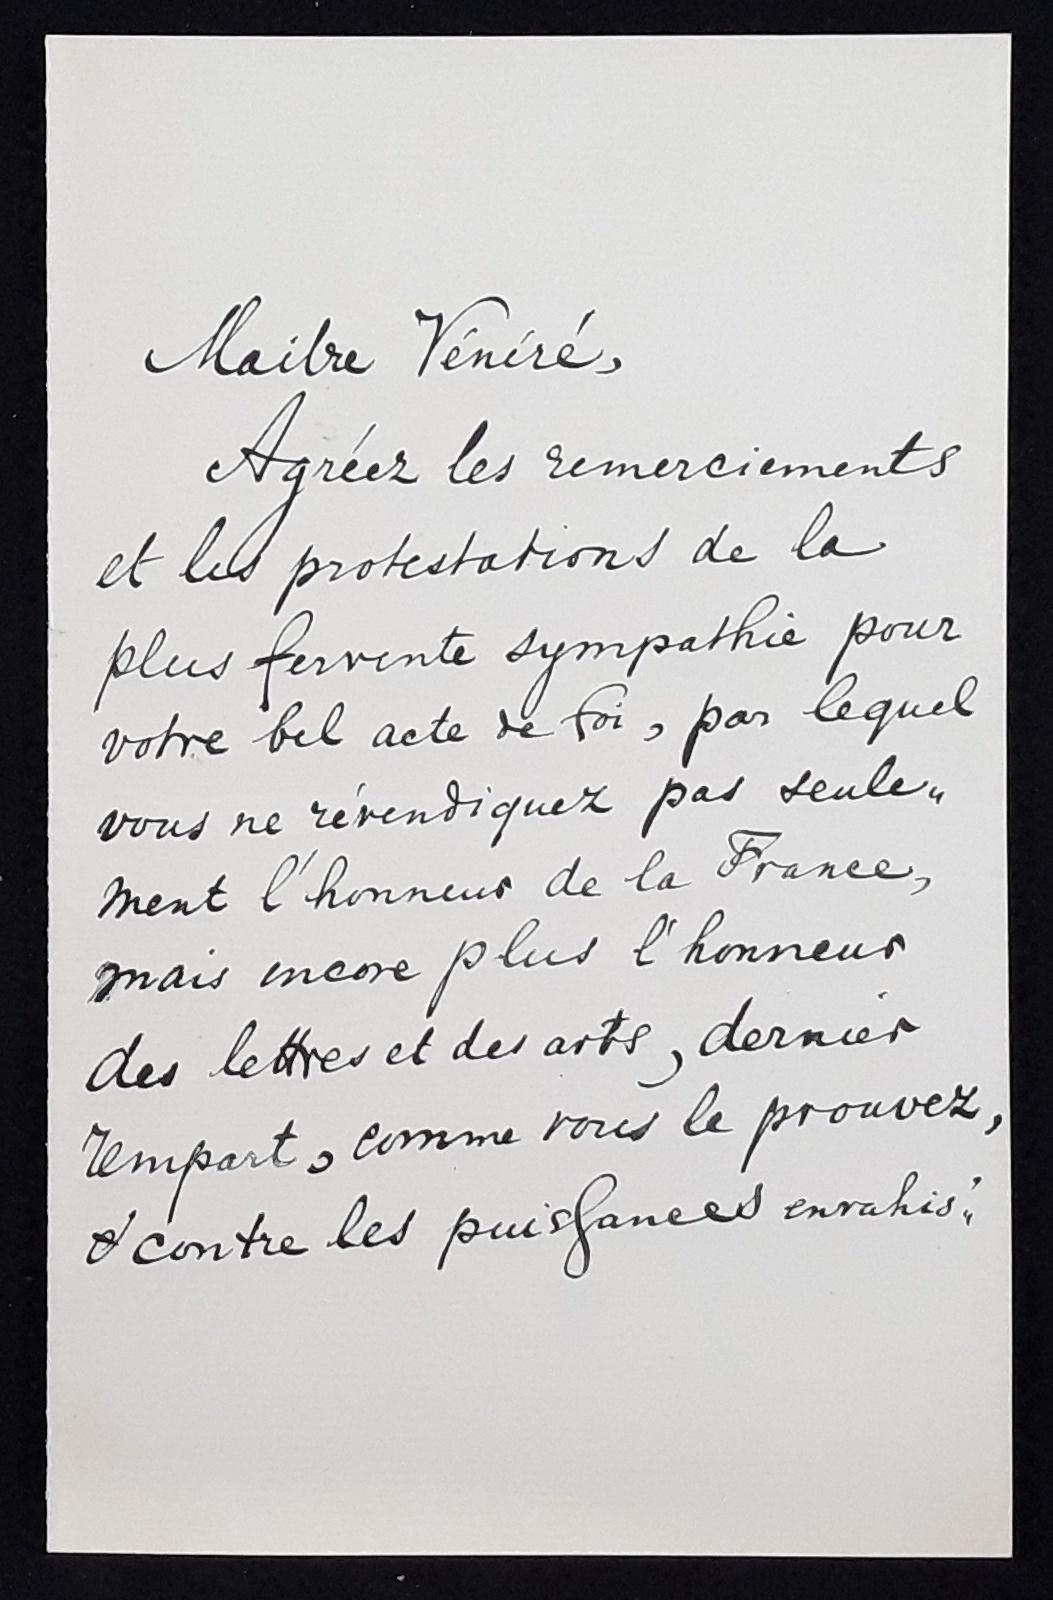 Maître Vénéré,
Agréez les remerciements
et les protestations de la
plus fervente sympathie pour
votre bel acte de foi, par lequel
vous ne révendiquez pas seule„
ment l'honneur de la France,
mais encore plus l'honneur
des lettres et des arts, dernier
rempart, comme vous le prouvez,
contre les puissances envahis„